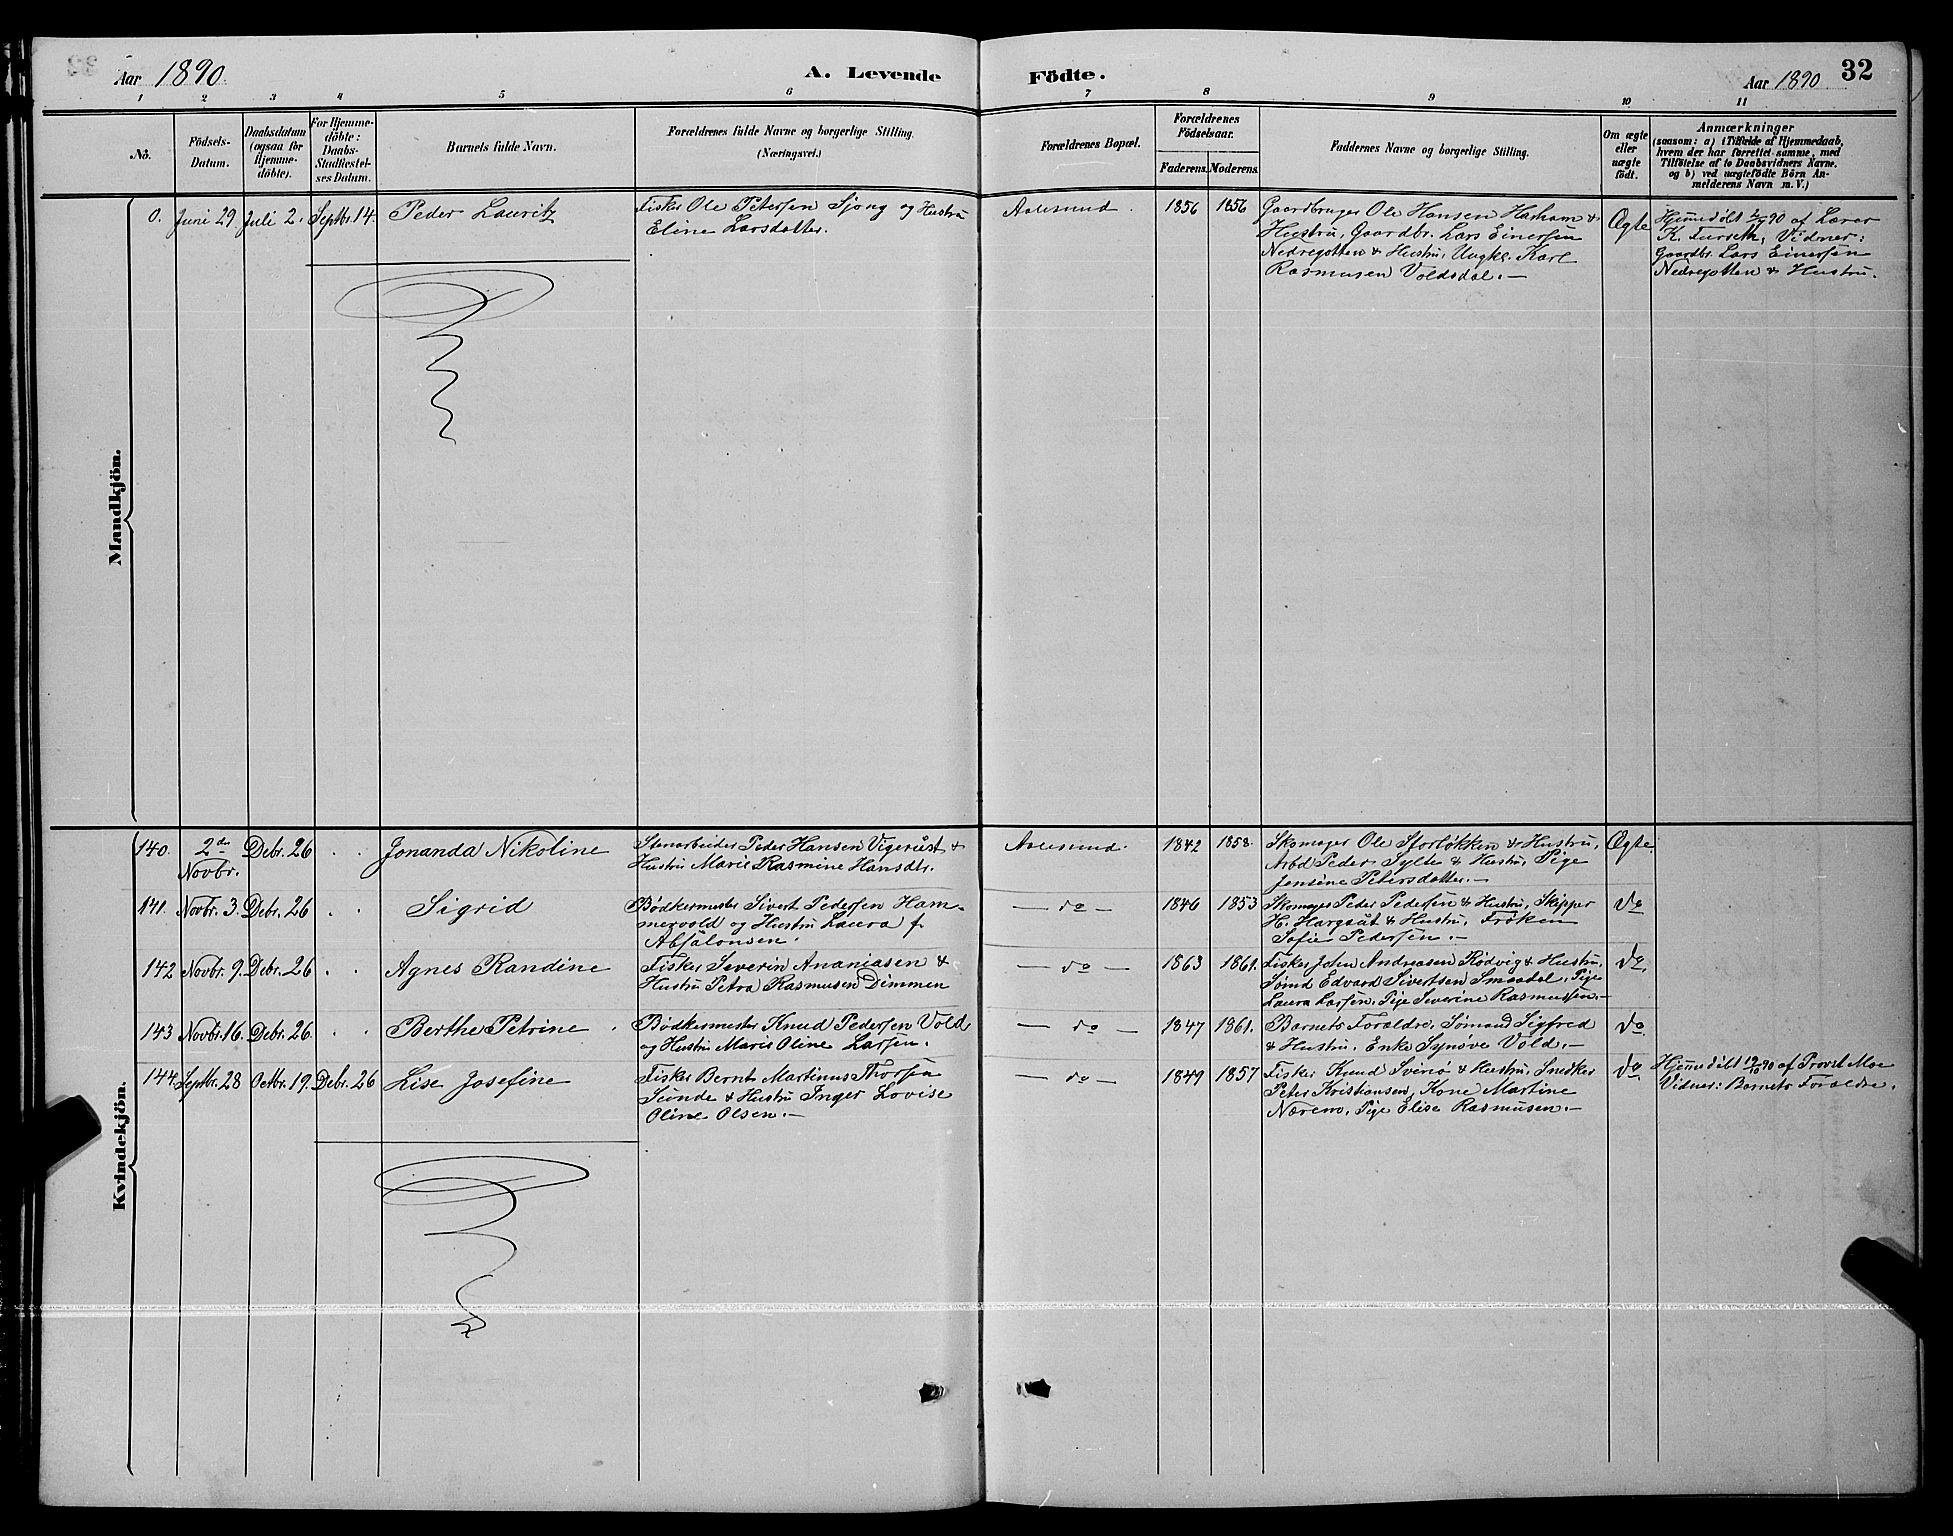 Aar 1890.
A. Levende
Födte.
Aar 1890
32
1 2 3 4 5 6 7 8 9 10 11
No.
Födsels-
Datum.
Daabsdatum
(ogsaa for
Hjemme-
döbte).
For Hjemme-
döbte:
Daabs-
Stadfæstel-
ses Datum.
Barnets fulde Navn.
Forældrenes fulde Navne og borgerlige Stilling.
(Næringsvei.)
Forældrenes Bopæl.
Forældrenes
Födselsaar.
Faderens. Moderens.
Faddernes Navne og borgerlige Stilling.
Om ægte
eller
uægte
födt.
Anmærkninger
(saasom: a) i Tilfælde af Hjemmedaab,
hvem der har forrettet samme, med
Tilföielse af to Daabsvidners Navne.
og b) ved uægtefödte Börn An-
melderens Navn m. V.)
Mandkjön.
0. Juni 29 Juli 2. Septbr. 14. Peder Lauritz
Fisker Ole Petersen Sjong og Hustru
Eline Larsdatter.
Aalesund. 1856 1856
Gaardbruger Ole Hansen Harham &
Hustru, Gaardbr. Lars Einersen
Nedregotten & Hustru, Ungk. Karl
Rasmusen Voldsdal. —
Ægte
Hjemmedöbt 2/7 90 af Lærer
K. Furseth, Vidner:
Gaardbr. Lars Einersen
Nedregotten & Hustru.
Kvindekjön.
140. 2de
Novbr.
Debr. 26 . . Jonanda Nikoline
Stenarbeider Peder Hansen Vigerust &
Hustru Marie Rasmine Hansdtr.
Aalesund. 1842 1858.
Skomager Ole Storløkken & Hustru,
Arbd Peder Sylte & Hustru, Pige
Jensine Petersdatter. —
Ægte
141. Novbr. 3. Debr. 26 . . Sigrid
Bødkermester Sivert Pedersen Ham-
mervold og Hustru Laura f.
Absalonsen.
— do — 1846 1853
Skomager Peder Pedersen & Hustru, Skipper
H. Hargaut & Hustru, Frøken
Sofie Pedersen. —
do
142 Novbr. 9. Debr. 26 . . Agnes Randine
Fisker Severin Ananiasen &
Hustru Petra Rasmusen Dimmen
— do — 1863 1861.
Fisker John Andreasen Rødvig & Hustru,
Sömd Edvard Sivertsen Smaadal, Pige
Laura Larsen, Pige Severine Rasmusen. —
do.
143 Novbr. 16. Debr. 26. . . Berthe Petrine
Bødkermester Knud Pedersen Vold
og Hustru Marie Oline Larsen.
— do — 1847 1861.
Barnets Forældre, Sömand Sigfred
& Hustru, Enke Synøve Vold. —
do
144. Septbr. 28 Octbr. 19. Debr. 26 Lise Josefine
Fisker Bernt Martinus Thorsen
Sunde & Hustru Inger Lovise
Oline Olsen. —
— do — 1849 1857
Fisker Knud Svinø & Hustru, Snedker
Peter Kristiansen, Kone Martine
Nærem, Pige Elise Rasmusen. —
do
Hjemmedöbt 19/10 90 af Provst Moe
Vidner: Barnets Forældre.